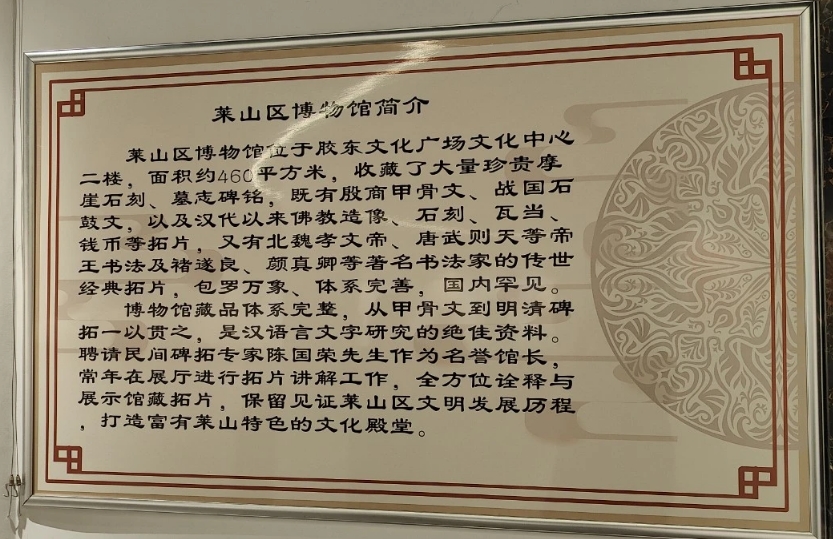 莱山区博物馆简介
莱山区博物馆位于胶东文化广场文化中心
二楼，面积约460平方米，收藏了大量珍贵摩
崖石刻、墓志碑铭，既有殷商甲骨文、战国石
鼓文，以及汉代以来佛教造像、石刻、瓦当、
钱币等拓片，又有北魏孝文帝、唐武则天等帝
王书法及褚遂良、颜真卿等著名书法家的传世
经典拓片，包罗万象、体系完善，国内罕见。
博物馆藏品体系完整，从甲骨文到明清碑
拓一以贯之，是汉语言文字研究的绝佳资料。
聘请民间碑拓专家陈国荣先生作为名誉馆长，
常年在展厅进行拓片讲解工作，全方位诠释与
展示馆藏拓片，保留见证莱山区文明发展历程
，打造富有莱山特色的文化殿堂。